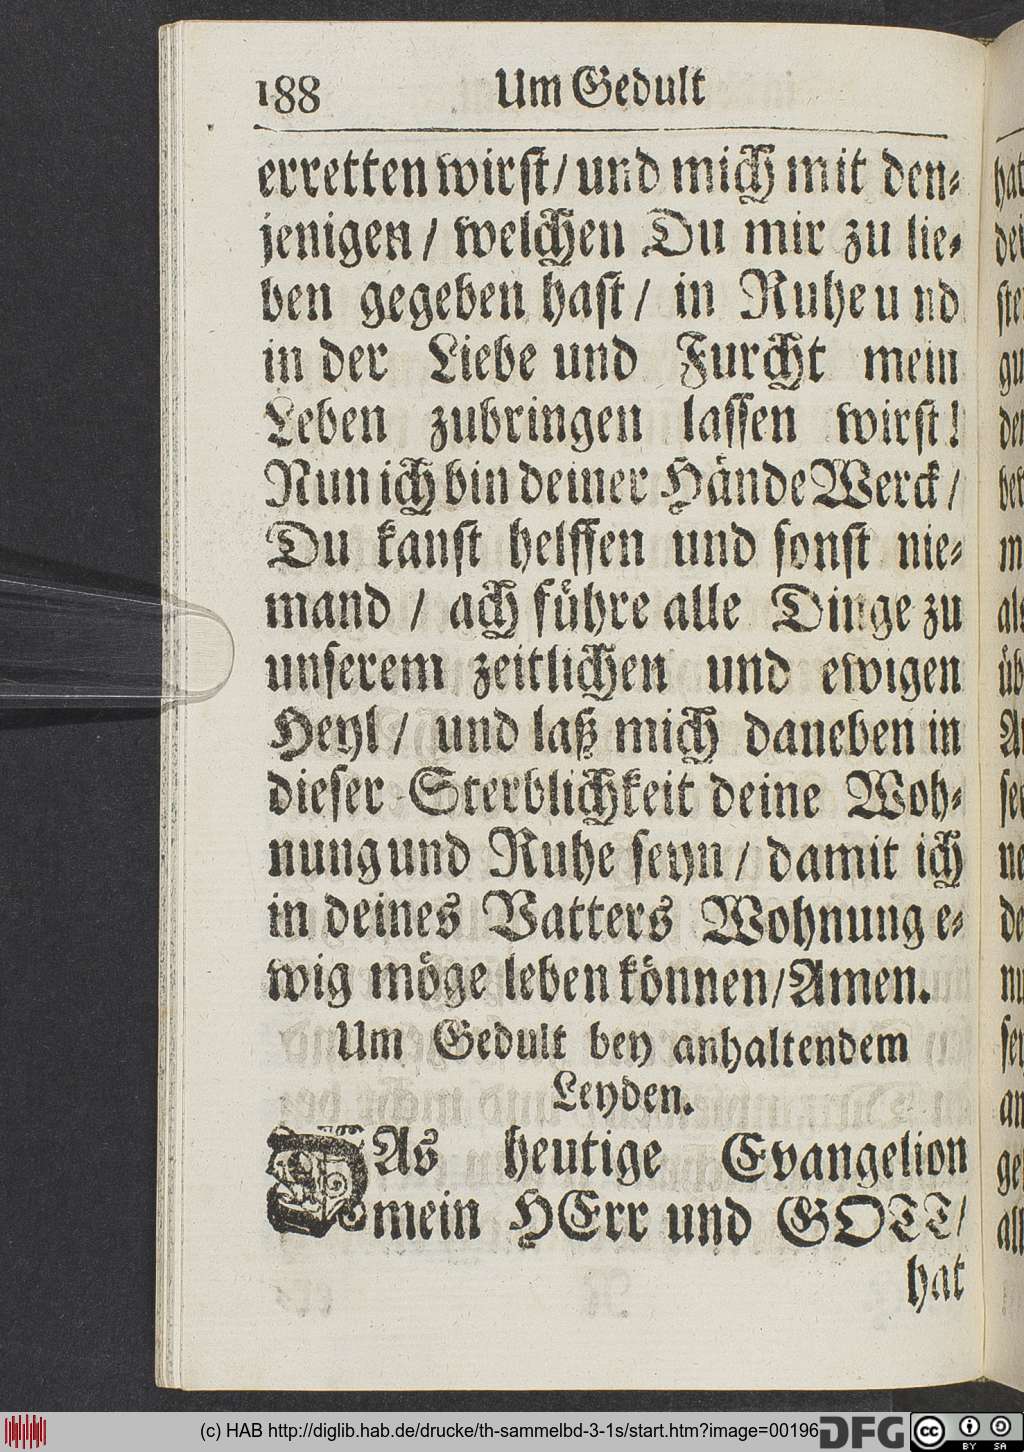 188 Um Gedult
erretten wirst/ und mich mit den⸗
jenigen / welchen Du mir zu lie⸗
ben gegeben hast/ in Ruhe und
in der Liebe und Furcht mein
Leben zubringen lassen wirst!
Nun ich bin deiner Hände Werck/
Du kanst helffen und sonst nie⸗
mand / ach führe alle Dinge zu
unserem zeitlichen und ewigen
Heyl / und laß mich daneben in
dieser Sterblichkeit deine Woh⸗
nung und Ruhe seyn / damit ich
in deines Vatters Wohnung e⸗
wig möge leben können/Amen.
Um Gedult bey anhaltendem
Leyden.
DAs heutige Evangelion
mein HErr und GOTT/
hat
(c) HAB http://diglib.hab.de/drucke/th-sammelbd-3-1s/start.htm?image=00196
DFG cc BY SA